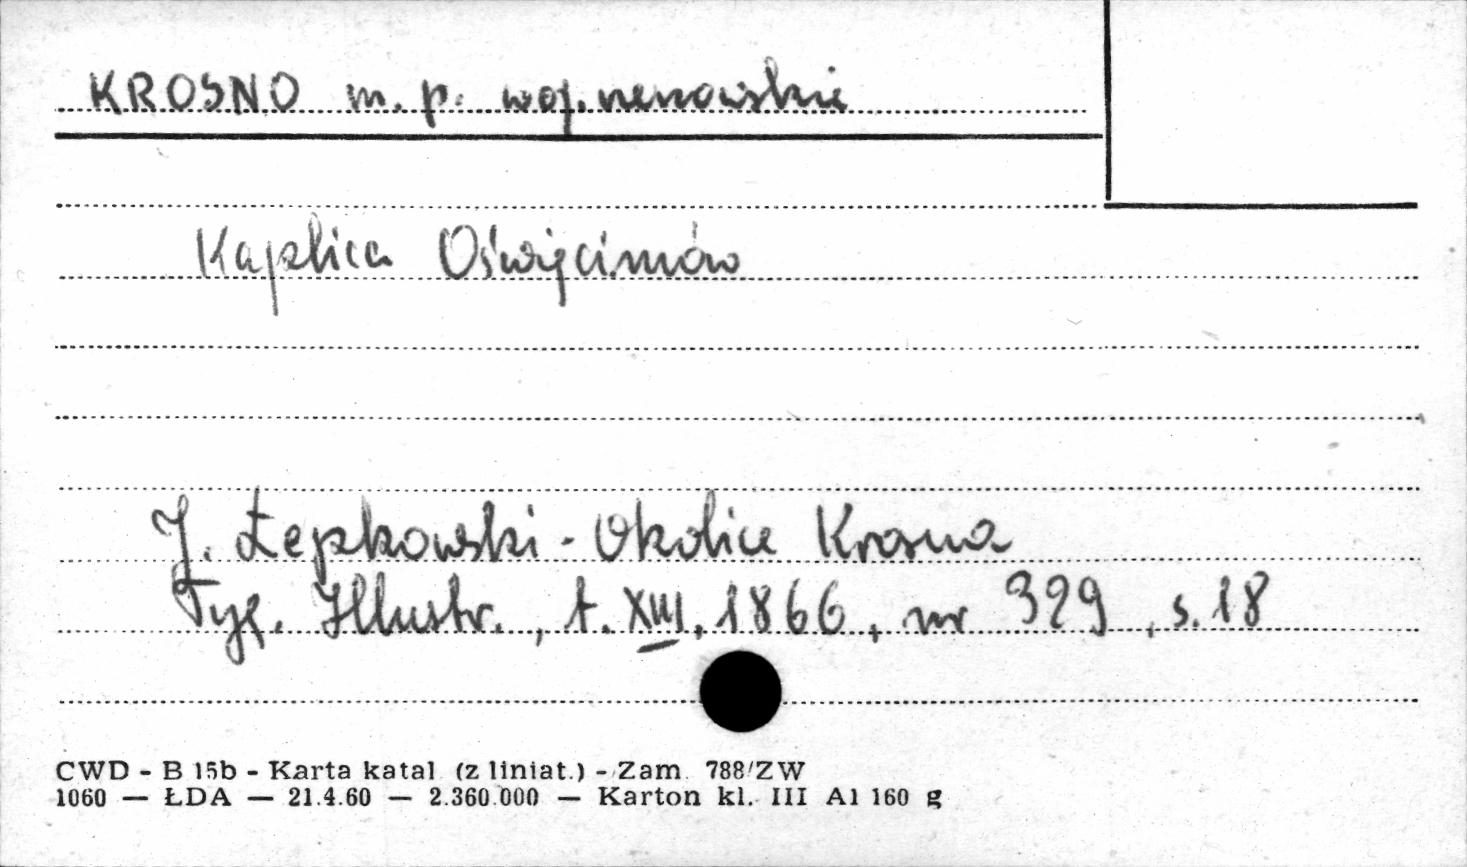 KROSNO m. p. woj. rzeszowskie
Kaplica Oświęcimów
J. Łepkowski - Okolice Krosna
Tyg. Illustr., t. XIII, 1866, nr 329, s. 18
CWD - B 15b - Karta katal. (z liniat.) - Zam. 788/ZW
1060 — ŁDA — 21.4.60 — 2.360.000 — Karton kl. III A1 160 g